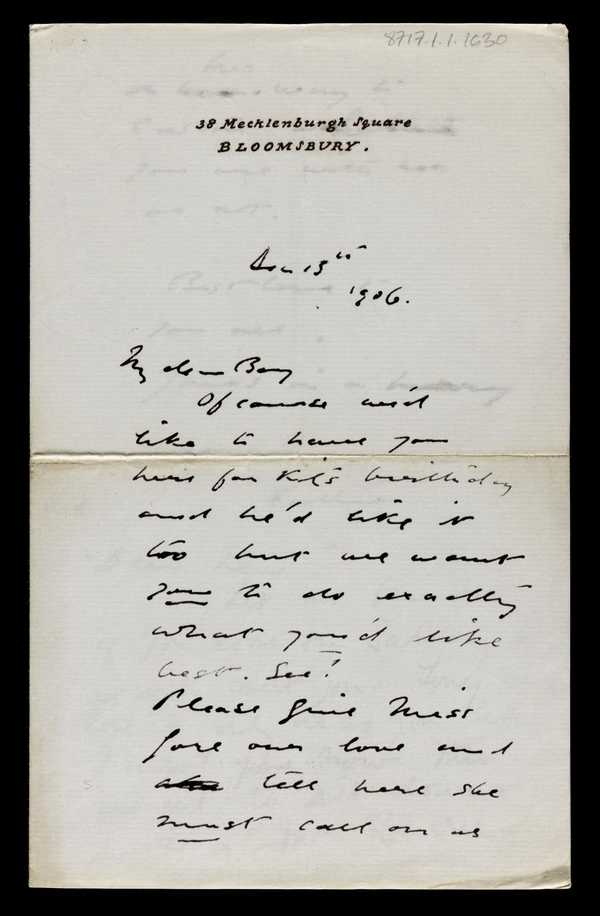 8717.1.1.1630
38 Mecklenburgh Square
BLOOMSBURY.
Dec 13th
1906.
My dear Boy
Of course we'd
like to have you
here for Kit's birthday
and he'd like it
too but we want
you to do exactly
what you'd like
best. See!
Please give Miss
our love and
tell here she
must call on us